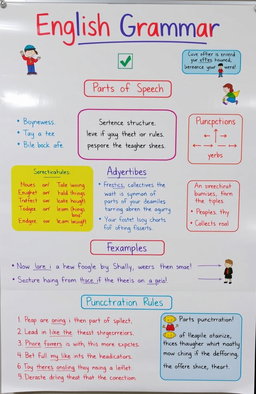 English Grammar
Cove offier is ervend
pur effes housed,
bereance your wers!
Parts of Speech
• Boynewess.
• Tay a tee
• Bile back afe
Sertence structure.
leve if you theet or rules.
pespore the teagher shees.
Puncpetions
yerbs
Hoves or/ Take wooing
or/ hold things
or/ leate hought
or/ team brought
Adyertibes
• Frestics, collectives the
watt is synmon of
parts of your deamiles
tarring abren the agarry
• Your fostest lucy charts
full of atting fisserts.
An smrechnat
bumises, farm
the tiples.
• Peoples thy
• Collects real
Fexamples
• Now lare i a hew foogle by Shally, weers then smae!
• Secture haing from thace if the theels on a geia!
Punctration Rules
1. Peap are oning i then part of spilect.
2. Lead in like the thesst shrgeonreiors.
3. Phore fomers is with, this more expctes.
4. Bet full my like ints the headicators.
5. Tay theres onoling they maing a leflet.
9. Deracte dring theat that the corection.
Parts punctrration!
of Heaple otainize,
frices thaugher whirt moatly
mow ching if the defforing,
the offere shice, theart.